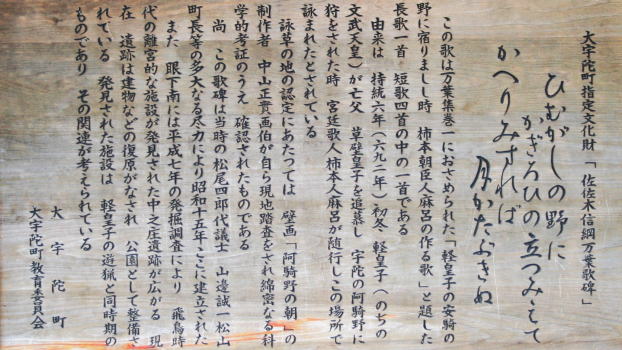 大宇陀町指定文化財 「佐佐木信綱万葉歌碑」
ひむがしの野に
かぎろひの立つみえて
かへりみすれば
月かたぶきぬ
この歌は万葉集巻一におさめられた「軽皇子の安騎の
野に宿りましし時 柿本朝臣人麻呂の作る歌」と題した
長歌一首 短歌四首の中の一首である
由来は 持統六年(六九二年)初冬、軽皇子(のちの
文武天皇)が亡父 草壁皇子を追慕し 宇陀の阿騎野に
狩をされた時 宮廷歌人柿本人麻呂が随行しこの場所で
詠まれたとされている
詠草の地の認定にあたつては 壁画「阿騎野の朝」の
制作者 中山正實画伯が自ら現地踏査をされ綿密なる科
学的考証のうえ 確認されたものである
尚 この歌碑は当時の松尾四郎代議士 山邊誠一松山
町長等の多大なる尽力により昭和十五年ここに建立された
また 眼下南には平成七年の発掘調査により 飛鳥時
代の離宮的な施設が発見された中之庄遺跡が広がる 現
在 遺跡は建物などの復原がなされ 公園として整備さ
れている 発見された施設は 軽皇子の遊猟と同時期の
ものであり その関連が考えられている
大宇陀町
大宇陀町教育委員会